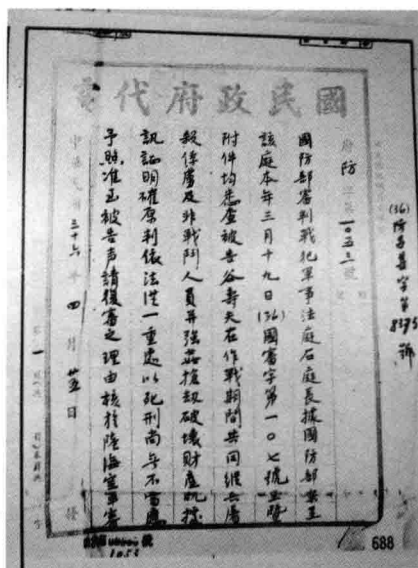 (36)防吾甚字第8395號
國民政府代電
府防字第一〇五三號
國防部審判戰犯軍事法庭石庭長據國防部案呈
該庭本年三月十九日(36)國審字第一〇七號呈暨
附件均悉查被告谷壽夫在作戰期間共同縱兵屠
殺俘虜及非戰鬥人員并強姦搶劫破壞財產既據
訊証明確原判依法從一重處以死刑尚無不當應
予照准至被告声請復審之理由核於陸海空軍審
中華民國三十六年四月廿五日
688
1053